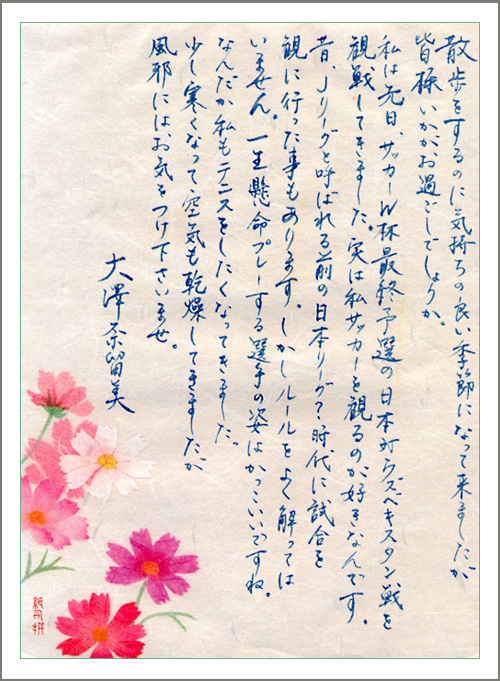 散歩をするのに気持ちの良い季節になって来ましたが
皆様いかがお過ごしでしょうか。
私は先日、サッカーW杯最終予選の日本対ウズベキスタン戦を
観戦してきました。実は私サッカーを観るのが好きなんです。
昔、Jリーグと呼ばれる前の日本リーグ?時代に試合を
観に行った事もあります。しかしルールをよく解っては
いません。一生懸命プレーする選手の姿はかっこいいですね。
なんだか私もテニスをしたくなってきました。
少し寒くなって空気も乾燥してきましたが
風邪にはお気をつけ下さいませ。
大澤奈留美